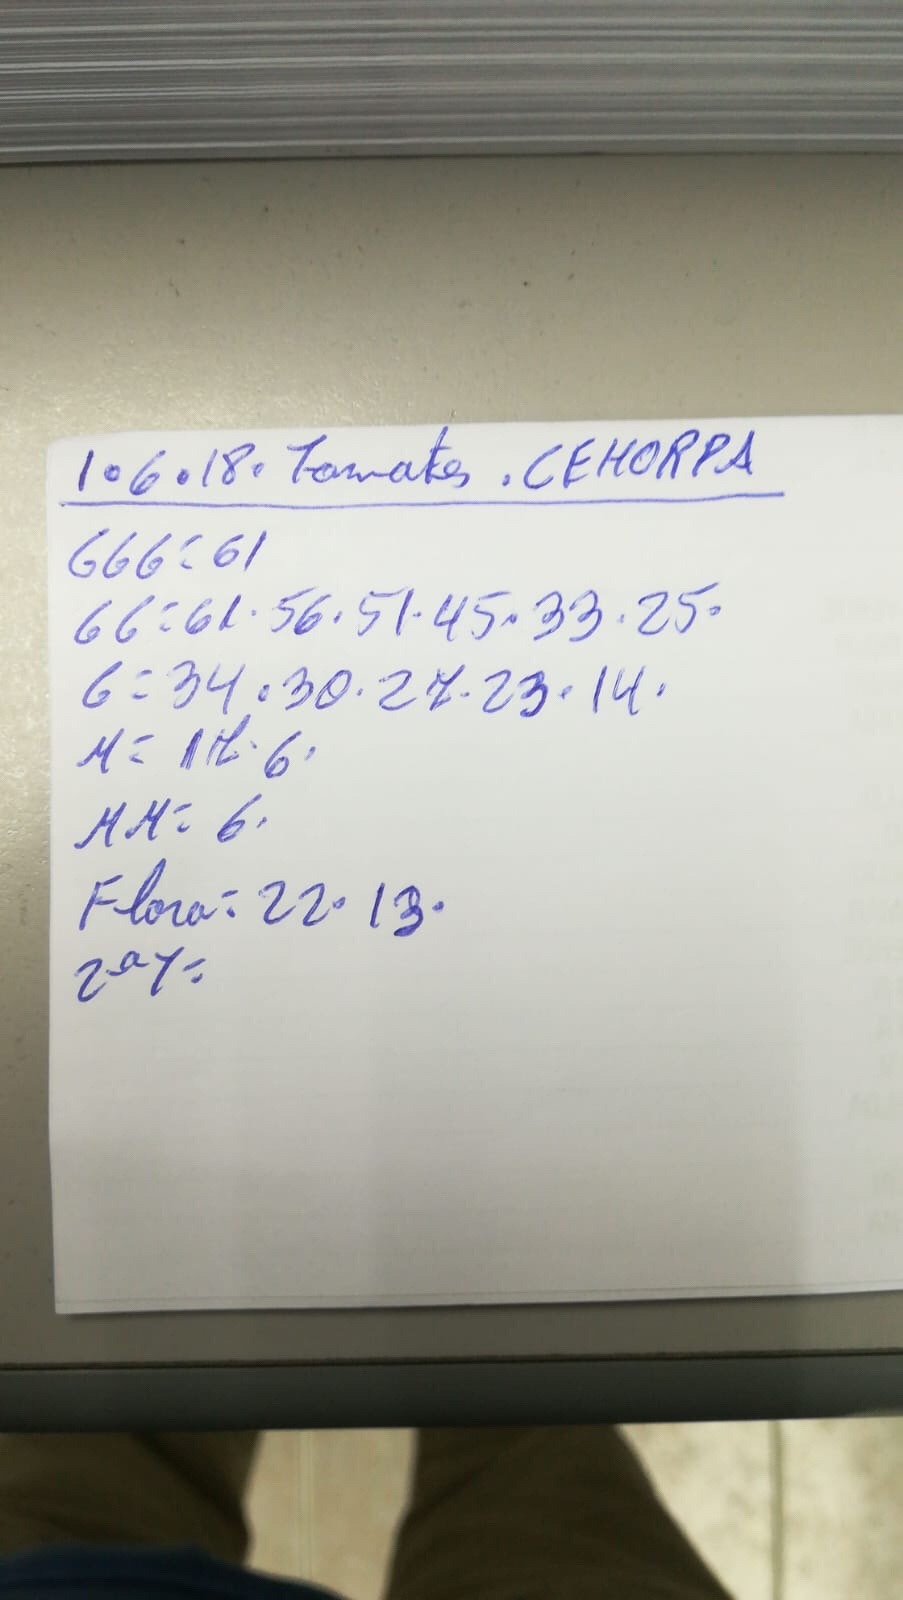 1.6.18. Tomates. CEHORPA
GGG=61
GG=61.56.51.45.33.25.
G=34.30.27.23.14.
M=17.6.
MM=6.
Floro=22.13.
2ªY=